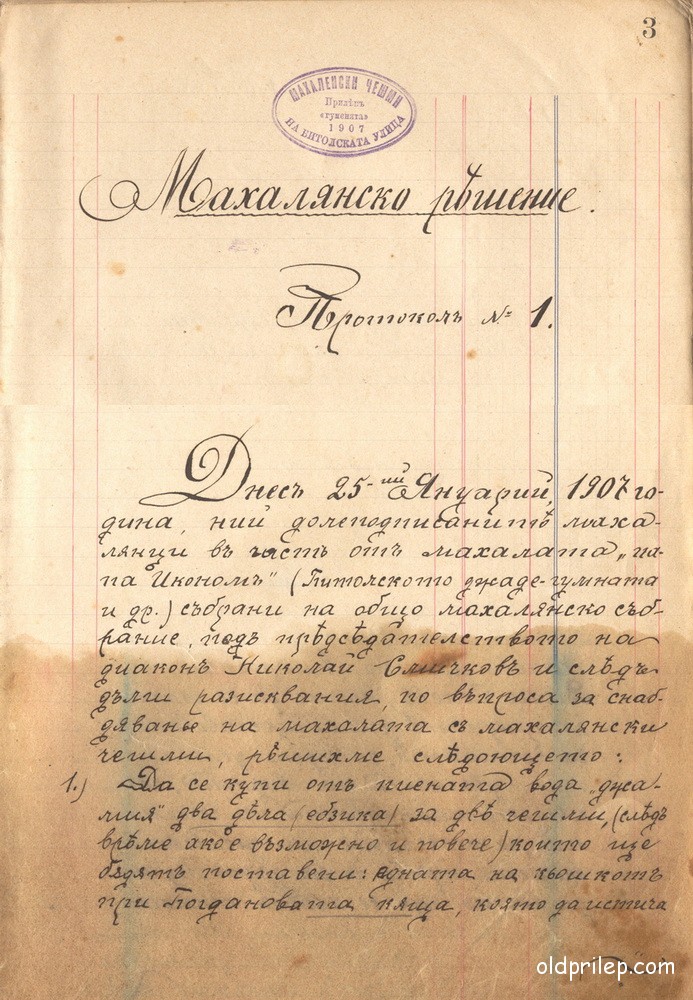 3
МАХАЛЕНСКИ ЧЕШМИ
Прилѣпъ
«гумената»
1907
НА БИТОЛСКАТА УЛИЦА
Махалянско рѣшение.
Протоколъ № 1.
Днесъ 25-ий Януарий, 1907 го-
дина, ний долеподписанитѣ маха-
лянци въ часть отъ махалата „па-
па Икономъ" (Битолското джаде-гумната
и др.) събрани на общо махалянско съб-
рание, подъ прѣдсѣдателството на
диаконъ Николай Смичковъ и слѣдъ
дълги разисквания, по въпроса за снаб-
дяванье на махалата съ махалянски
чешми, рѣшихме слѣдоющето:
1.) Да се купи отъ пиената вода „джа-
мия" два дѣла (ебзика) за двѣ чешми, (слѣдъ
врѣме ако е възможно и повече) които ще
бѫдятъ поставени: едната на кьошкотъ
при Богдановата кяща, която да истича
oldprilep.com